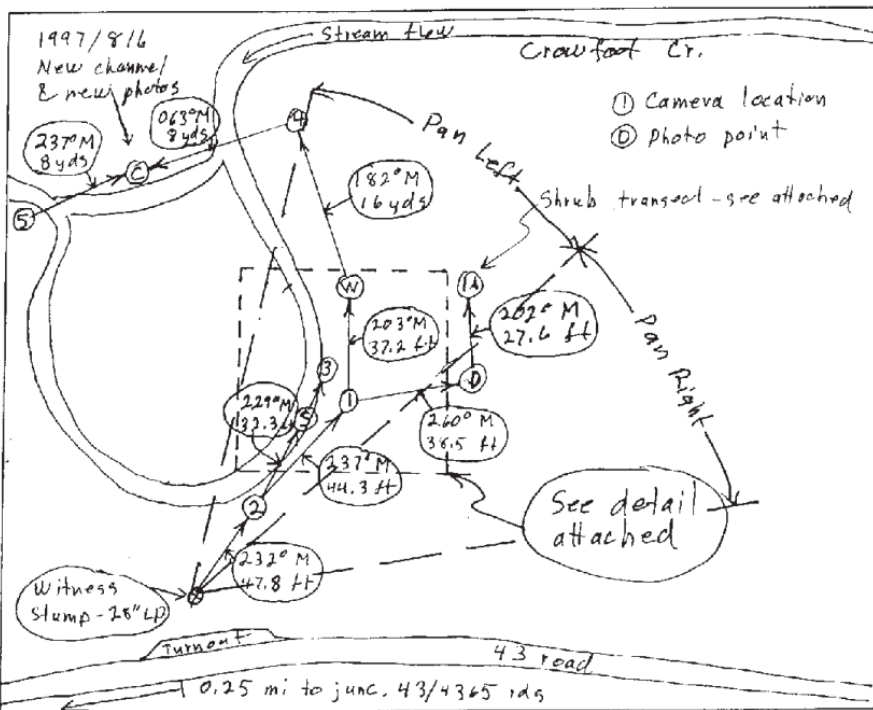 1997/8/6
New channel
& new photos
Stream flow
Crowfoot Cr.
① Camera location
Ⓓ Photo point
237°M
8 yds
063°M
8 yds
C
5
4
Pan Left
182°M
16 yds
Shrub transect - see attached
W
1A
203°M
37.2 ft
202° M
27.6 ft
Pan Right
3
1
D
229°M
32.3 ft
S
260° M
38.5 ft
237° M
44.3 ft
2
See detail
attached
232° M
47.8 ft
Witness
Stump - 28" LP
Turnout
43 road
0.25 mi to junc. 43/4365 rds